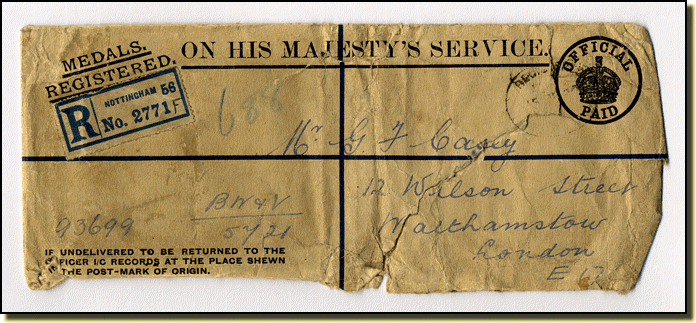 MEDALS.
REGISTERED.
ON HIS MAJESTY'S SERVICE.
OFFICIAL
PAID
R
NOTTINGHAM 56
No. 2771F
688
Mr G F Casey
12 Wilson Street
Walthamstow
London
E 17
93699
BW&V
5721
IF UNDELIVERED TO BE RETURNED TO THE
FICER I/C RECORDS AT THE PLACE SHEWN
THE POST-MARK OF ORIGIN.